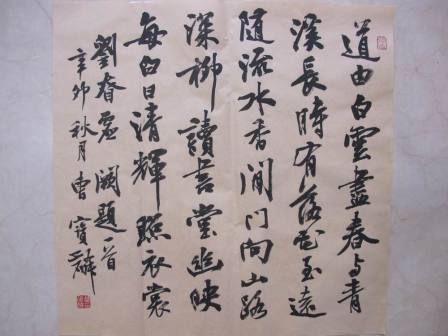 道由白雲盡春与青
溪長時有落花至遠
隨流水香閒门向山路
深柳讀書堂幽映
每白日清輝照衣裳
劉眘虛闕題一首
辛卯秋月曹寶麟